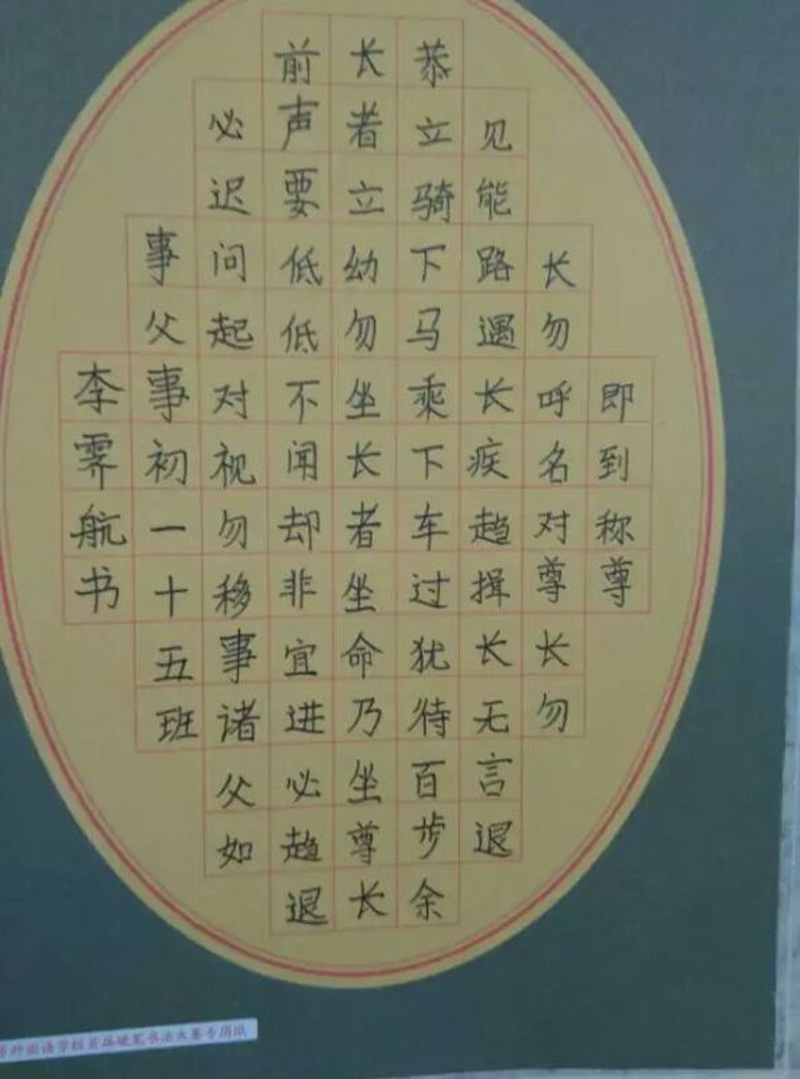 即到称尊
长勿呼名对尊长勿
见能路遇长疾趋揖长无言退
恭立骑下马乘下车过犹待百步余
长者立幼勿坐长者坐命乃坐尊长
前声要低低不闻却非宜进必趋退
必迟问起对视勿移事诸父如
事父事初一十五班
李霁航书
外国语学校首届硬笔书法大赛专用纸